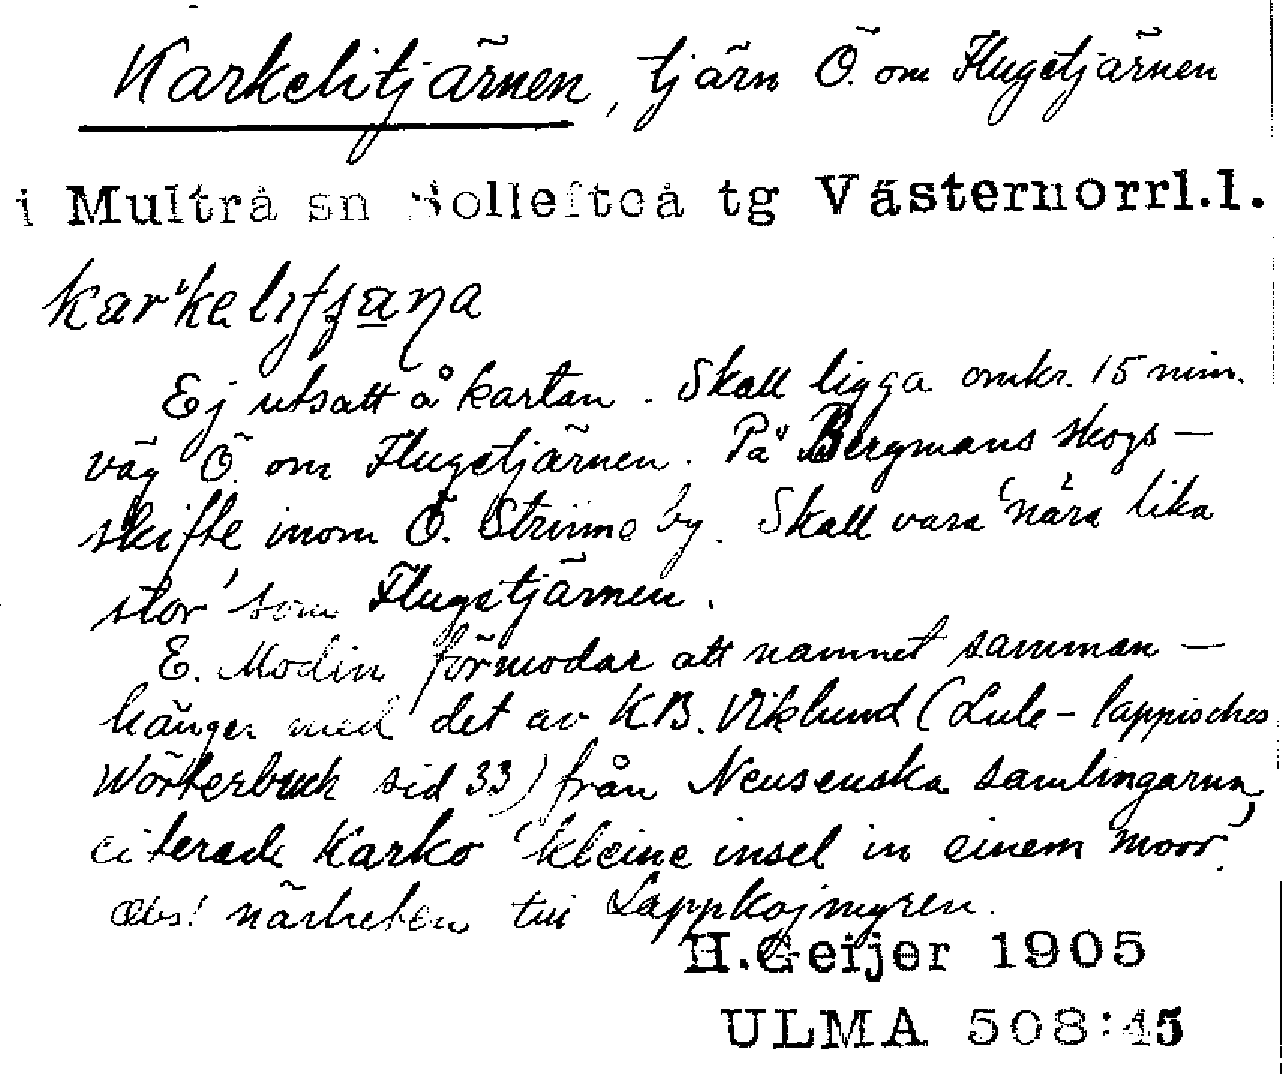 Karkelitjärnen, tjärn Ö. om Flugetjärnen
i Multrå sn Sollefteå tg Västernorrl.l.
Ej utsatt å kartan. Skall ligga omkr. 15 min.
väg Ö. om Flugetjärnen. På Bergmans skogs-
skifte inom Ö. Strinne by. Skall vara 'nära lika
stor' som Flugetjärnen.
E. Modin förmodar att namnet samman-
hänger med det av KB. Viklund (Lule-lappisches
Wörterbuch sid 33) från Neusenska samlingarna
citerade Karko 'kleine insel in einem moor'.
Obs! närheten till Lappkojmyren.
H.Geijer 1905
ULMA 508:45